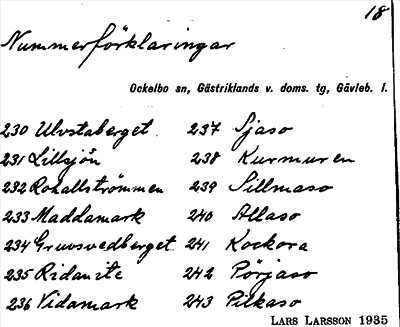 18
Nummerförklaringar
Ockelbo sn, Gästriklands v. doms. tg, Gävleb. l.
230 Ulvstaberget 237 Sjaso
231 Lillsjön 238 Kurmuren
232 Rohallströmmen 239 Sillmaso
233 Maddamark 240 Allaso
234 Gruvsvedberget 241 Kockora
235 Ridanite 242 Pörjaso
236 Vidamark 243 Pilkaso
LARS LARSSON 1935